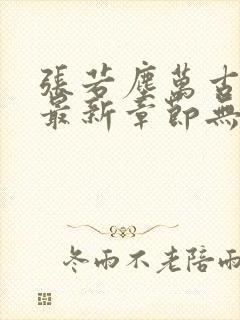 張若塵萬古
最新章節無
冬雨不老陪雨